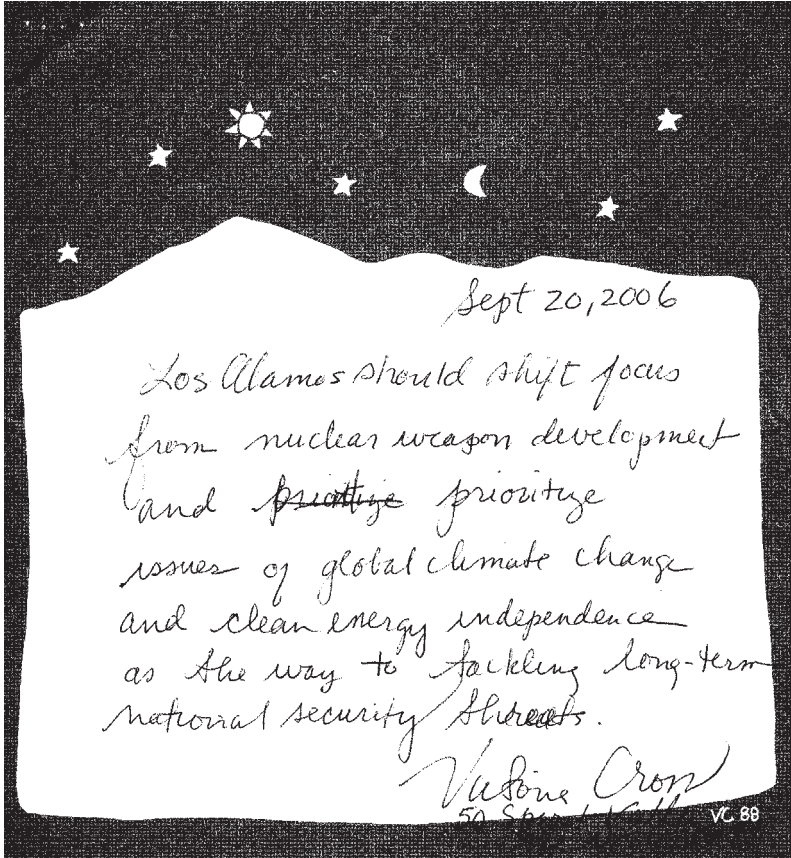 Sept 20, 2006
Los Alamos should shift focus
from nuclear weapon development
and prioritize prioritize
issues of global climate change
and clean energy independence
as the way to tackling long-term
national security threats.
Cron
50
VC 88